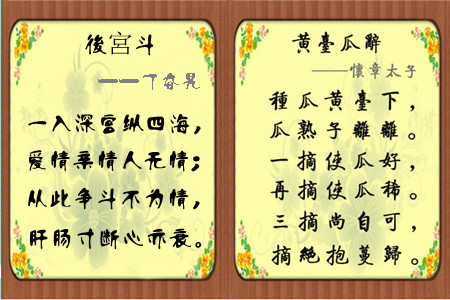 後宮斗
一入深宫纵四海，
爱情情人无情；
从此争斗不为情，
肝肠寸断心亦衰。
黄臺瓜辭
——懷章太子
種瓜黄臺下，
瓜熟子離離。
一摘使瓜好，
再摘使瓜稀。
三摘尚自可，
摘絕抱蔓歸。